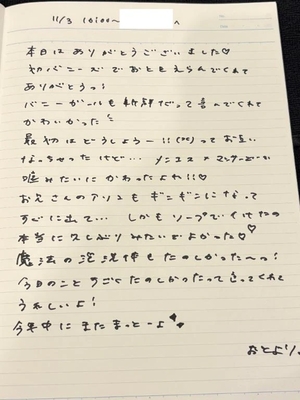 11/3 10:00~ へ
本日はありがとうございました♡
初バニーズでおとをえらんでくれて
ありがとうっ!
バニーガールも新鮮だって喜んでくれて
かわいかった
最初はどうしよう~!!(××)ってお互い
なっちゃったけど...
噛みたいにかわったよね!!
お兄さんのアソコもギンギンになって
すぐに出て... しかもソープでイけたの
本当に久しぶりみたいでよかった♡♡
魔法の泡洗体もたのしかった~っ!
今日のことすごくたのしかったって言ってくれて
うれしいよ!
今年中にまたまってーよ
おとより